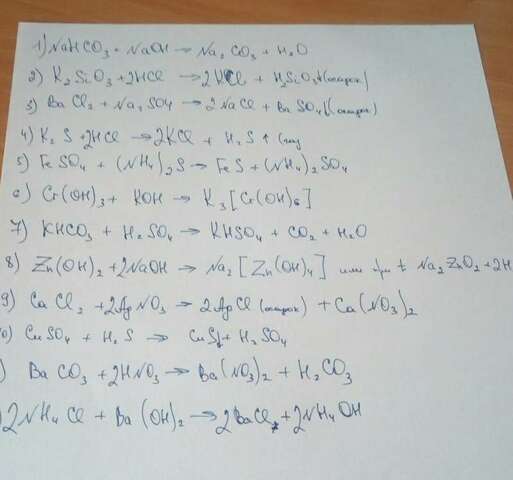 1) NaHCO3 + NaOH → Na2CO3 + H2O
2) K2SiO3 + 2HCl → 2KCl + H2SiO3↓(осадок)
3) BaCl2 + Na2SO4 → 2NaCl + BaSO4↓(осадок)
4) K2S + 2HCl → 2KCl + H2S ↑ (газ
5) FeSO4 + (NH4)2S → FeS + (NH4)2SO4
6) Cr(OH)3 + KOH → K3[Cr(OH)6]
7) KHCO3 + H2SO4 → KHSO4 + CO2 + H2O
8) Zn(OH)2 + 2NaOH → Na2[Zn(OH)4] или при t Na2ZnO2 + 2H
9) CaCl2 + 2AgNO3 → 2AgCl (осадок) + Ca(NO3)2
0) CuSO4 + H2S → CuS↓ + H2SO4
) BaCO3 + 2HNO3 → Ba(NO3)2 + H2CO3
) 2NH4Cl + Ba(OH)2 → 2BaCl2 + 2NH4OH